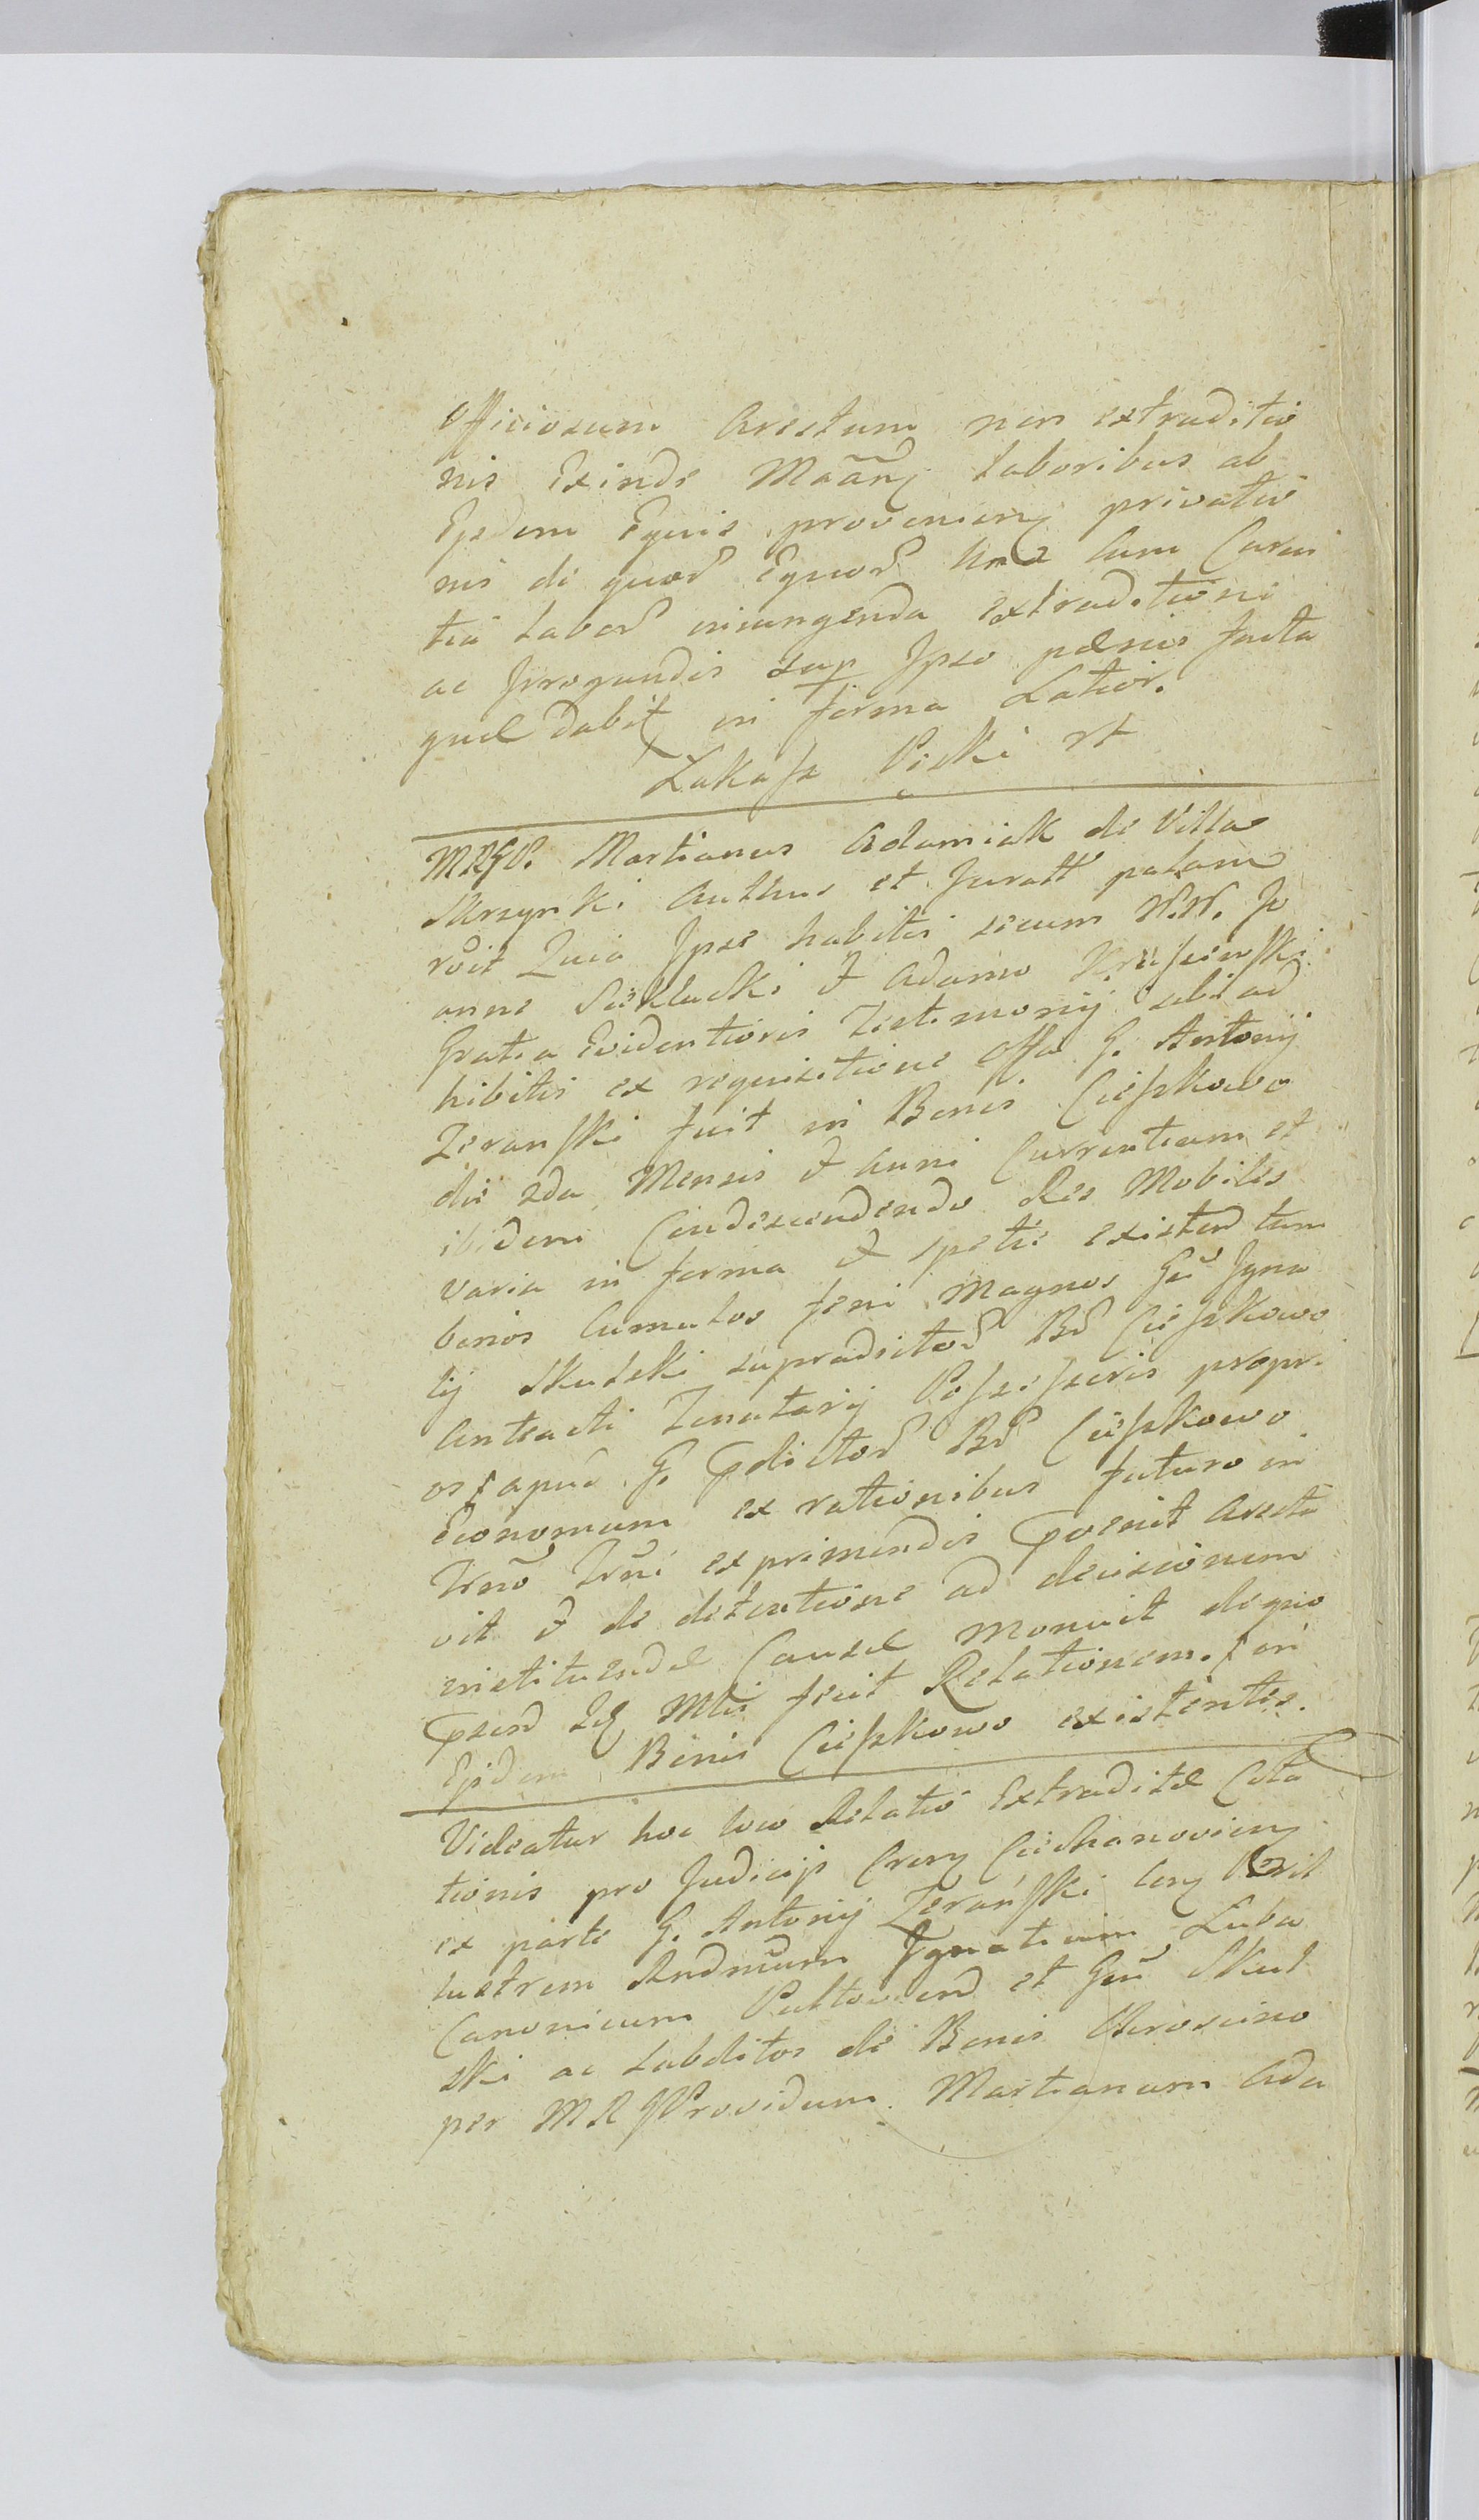 Officiosum Arestum non extraditio
nis Exinde Mããnj laboribus ab
Ejsdem Equis provenienj privatio
nis de quor Equor una cum Caren
tia labor iniungenda extraditioni
ac Irrogandis sup Ipso pænis facta
quæ dabit in forma Latior.
Lukasz Piski
MRGP. Martianus Adamiak de Villa
Skrzynki Authus et Juratt palam
Quia Ipse habitis secum N.N. Jo
anne Sieklucki & Adamo Kraszewski
Gratia Evidentioris Testimonij sibi ad
hibitis ex requisitione Offa G. Antonij
Zeranski fuit in Bonis Cieszkowo
die 2da Mensis & Anni Currentium et
ibidem Condescendendo Res Mobiles
varia in forma & spetie existen tum
binos Cumulos feni magnos Gñi Igna
tij Skulski supradictor Br Cieszkowo
Anteacti Tenutarij Possessoris propr.
os apud G. pdictor Br Cieszkowo
Economum ex rationibus futuro in
Trno Trñi exprimendis pvenit Aresta
vit & de detentione ad decisionem
instituendæ Causæ monuit deqso
psens Mtri fecit Relationem. in
Ejsdem Bonis Cieszkowo existentes.
Videatur hoc loco Relatio Extraditæ Cita
tionis pro Judicijs Crens Ciechanoviens
ex parte G. Antonij Zeranski
lustrem Rndmum Ignatium Luba
Canonicum Pultovien et Gñ Skul
ski ac Subditos de Bonis
per MR GProvidum Martianum Ada